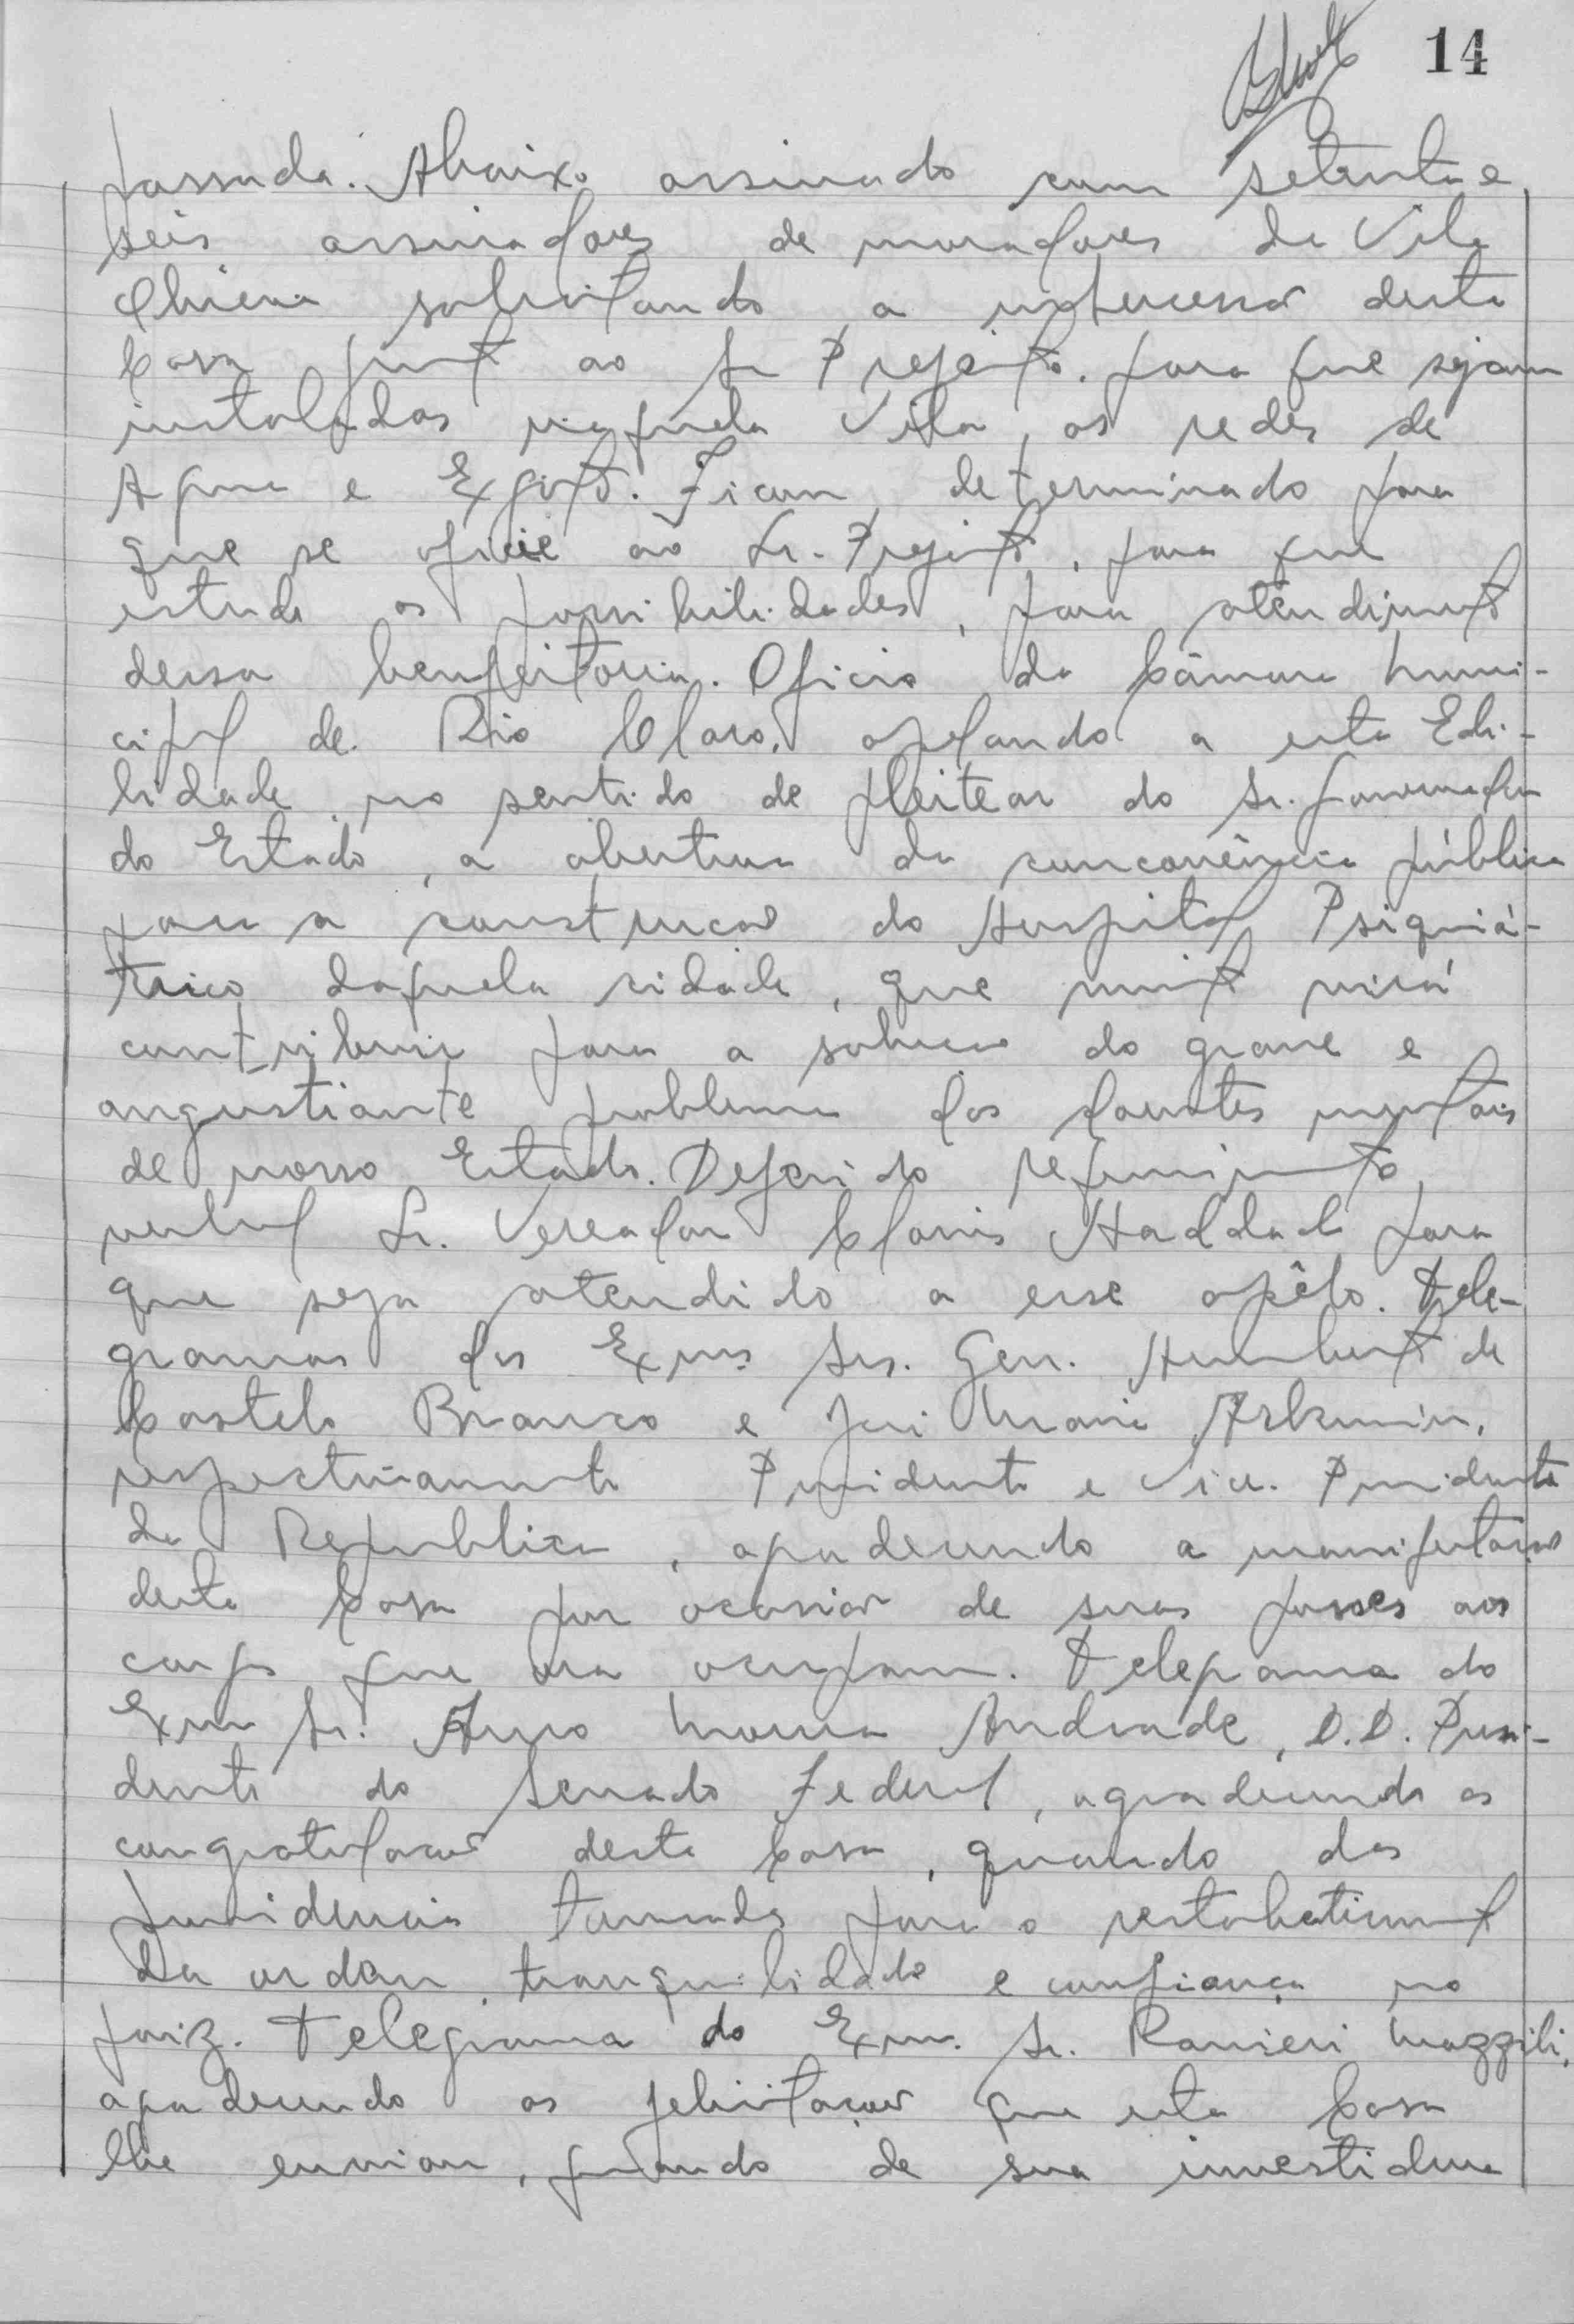 14
passada. Abaixo assinado com setenta e
seis assinadores de moradores da Vila
solicitando a intercessão desta
Casa junto ao Sr Prefeito. para que sejam
instaladas naquela Vila, as redes de
Agua e Exgoto. Ficam determinado para
que se oficie ao Sr. Prefeito, para que
estude as possibilidades, para atendimento
dessa benfeitoria. Oficio da Câmara Muni-
cipal de Rio Claro, apelando a esta Edi-
lidade no sentido de pleitear do Sr. Governador
do Estado, a abertura da concorrência pública
para a construcão do Hospital Psiquiá-
trico daquela cidade, que muito virá
contribuir para a solucão do grave e
angustiante problema dos doentes mentais
de nosso Estado. Deferido requerimento
verbal Sr. Vereador Clovis Haddad para
que seja atendido a esse apêlo. Tele-
gramas dos Exmos Srs. Gen. Humberto de
Castelo Branco e José Maria Alkmin,
respectivamente Presidente e Vice-Presidente
da Republica, agradecendo a manifestação
desta Casa por ocasião de suas posses aos
cargos que ora ocupam. Telegrama do
Exmo Sr. Auro Moura Andrade, D.D. Presi-
dente do Senado Federal, agradecendo as
congratulacões desta Casa, quando das
providencias tomadas para o restabelecimento
da ordem, tranquilidade e confiança no
paiz. Telegrama do Exmo. Sr. Ranieri Mazzili,
agradecendo as felicitaçoes que esta Casa
lhe enviou, quando de sua investidura